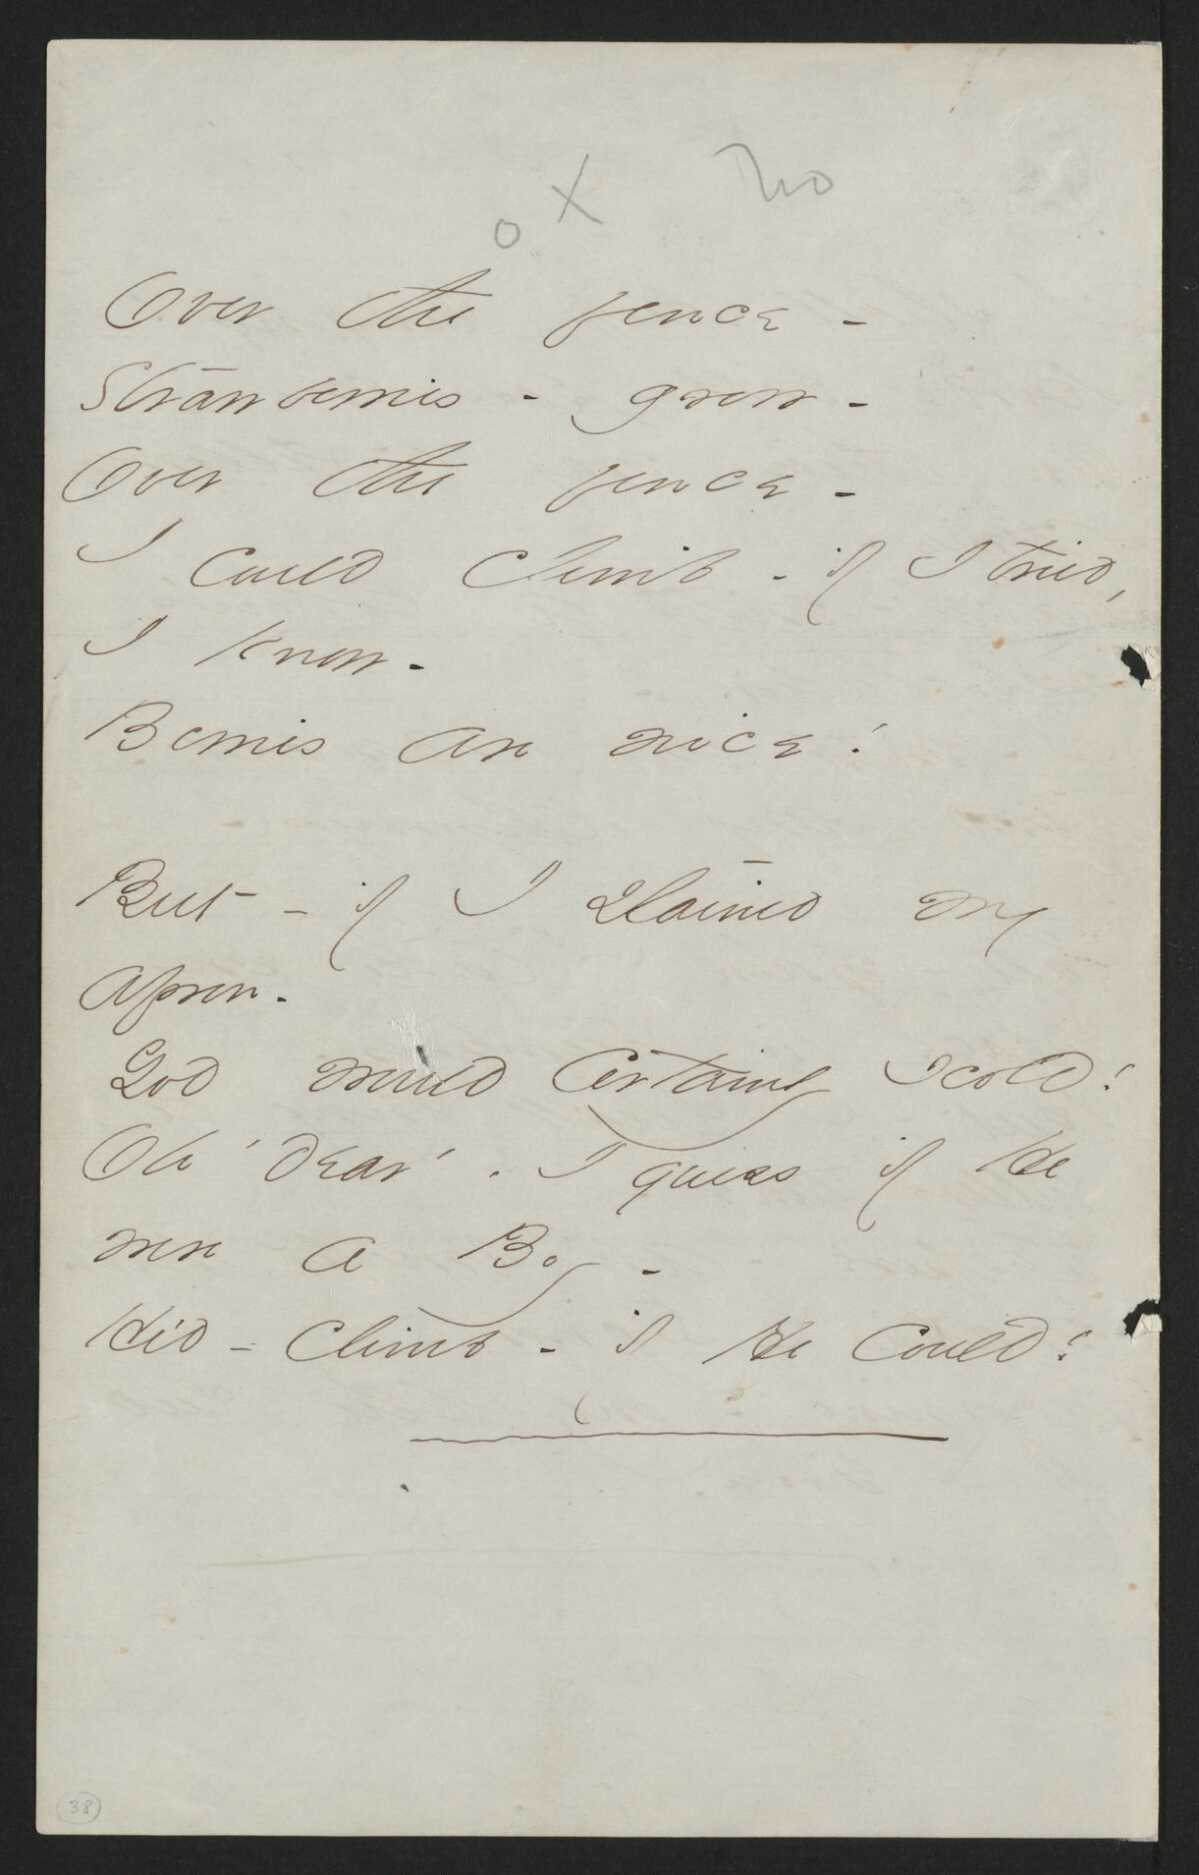 o X No
Over the fence -
Strawberries - grow -
Over the fence -
I could climb - if I tried,
I know -
Berries are nice!
But - if I stained my
Apron -
God would certainly scold!
Oh' dear'. I guess if He
were a Boy -
He'd - climb - if He could!
38